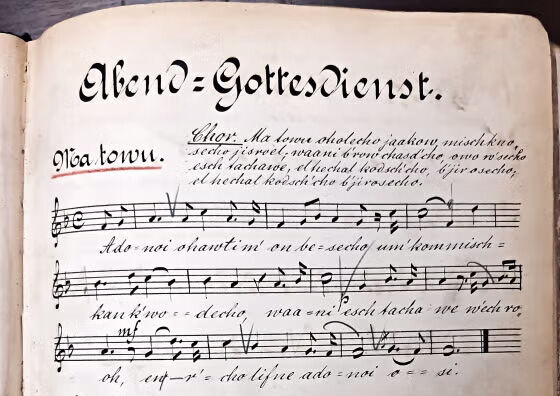 Abend=Gottesdienst.
Ma towu.
Chor. Ma towu oholecho jaakow, mischkno
secho jisroel, waani b'row chasd'cho, owo w'secho
esch tachawe, el hechal kodsch'cho, b'jirosecho,
el hechal kodsch'cho b'jirosecho.
Ado=noi ohawtim' on be=secho um'kommisch=
kan k'wo==decho, waa=ni esch tacha we w'ech ro,
mf
oh, cho lifne ado=noi o== si.